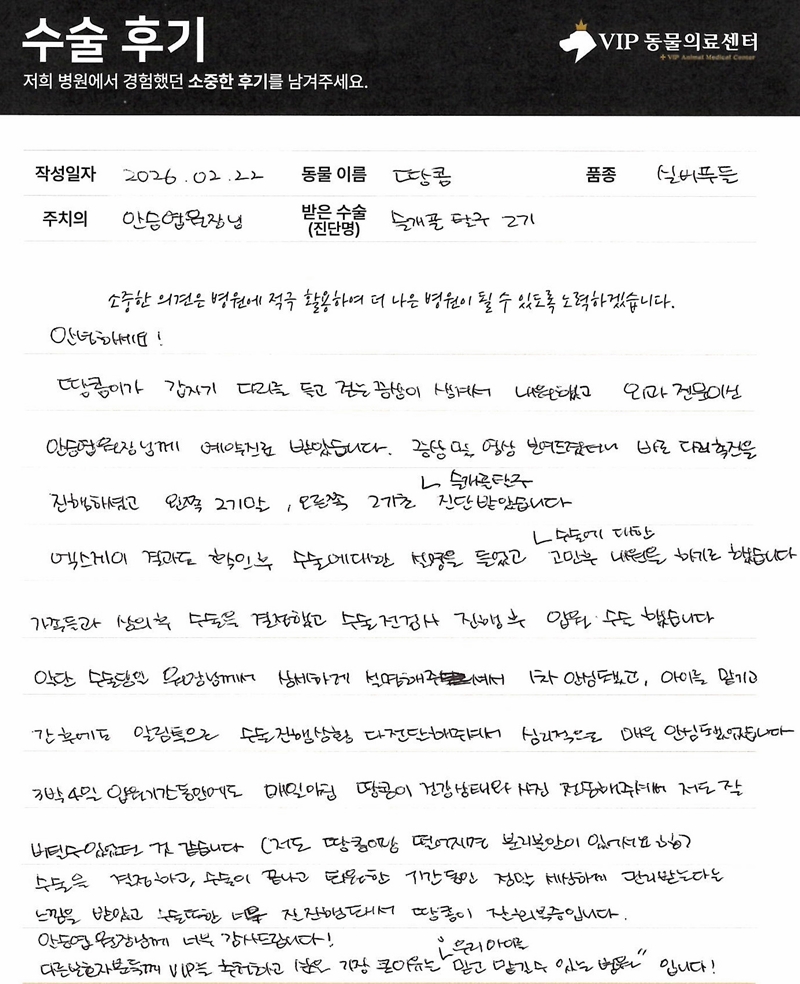 수술 후기
VIP 동물의료센터
VIP Animal Medical Center
저희 병원에서 경험했던 소중한 후기를 남겨주세요.
작성일자 2026.02.22 동물 이름 땅콩 품종 실버푸들
주치의 안승엽원장님 받은 수술 (진단명) 슬개골 탈구 2기
소중한 의견은 병원에 적극 활용하여 더 나은 병원이 될 수 있도록 노력하겠습니다.
안녕하세요!
땅콩이가 갑자기 다리를 들고 걷는 증상이 생겨서 내원했고 외과 전문이신
안승엽원장님께 예약진료 받았습니다. 증상 및 영상 보여드렸더니 바로 다리촉진을
슬개골탈구
진행하셨고 왼쪽 2기말, 오른쪽 2기초 진단받았습니다
수술에 대한
엑스레이 결과도 확인후 수술에대한 설명을 들었고 고민후 내원을 하기로 했습니다
가족들과 상의후 수술을 결정했고 수술전검사 진행 후 입원·수술 했습니다
일단 수술당일 원장님께서 상세하게 설명해주셔서 1차 안심됐고, 아이를 맡기고
간 후에도 알림톡으로 수술진행상황 다 전달해주셔서 심리적으로 매우 안심됐었습니다
3박4일 입원기간동안에도 매일아침 땅콩이 건강상태와 사진 전송해주셔서 저도 잘
버틸수있었던 것 같습니다 (저도 땅콩이랑 떨어지면 분리불안이 있어서요
수술을 결정하고, 수술이 끝나고 입원한 기간동안 정말 세심하게 관리받는다는
느낌을 받았고 수술또한 너무 잘 진행돼서 땅콩이 잘 회복중입니다.
안승엽 원장님께 너무 감사드립니다!
우리아이를
다른 보호자분들께 VIP를 추천하고 싶은 가장 큰이유는 "믿고 맡길수 있는 병원" 입니다!